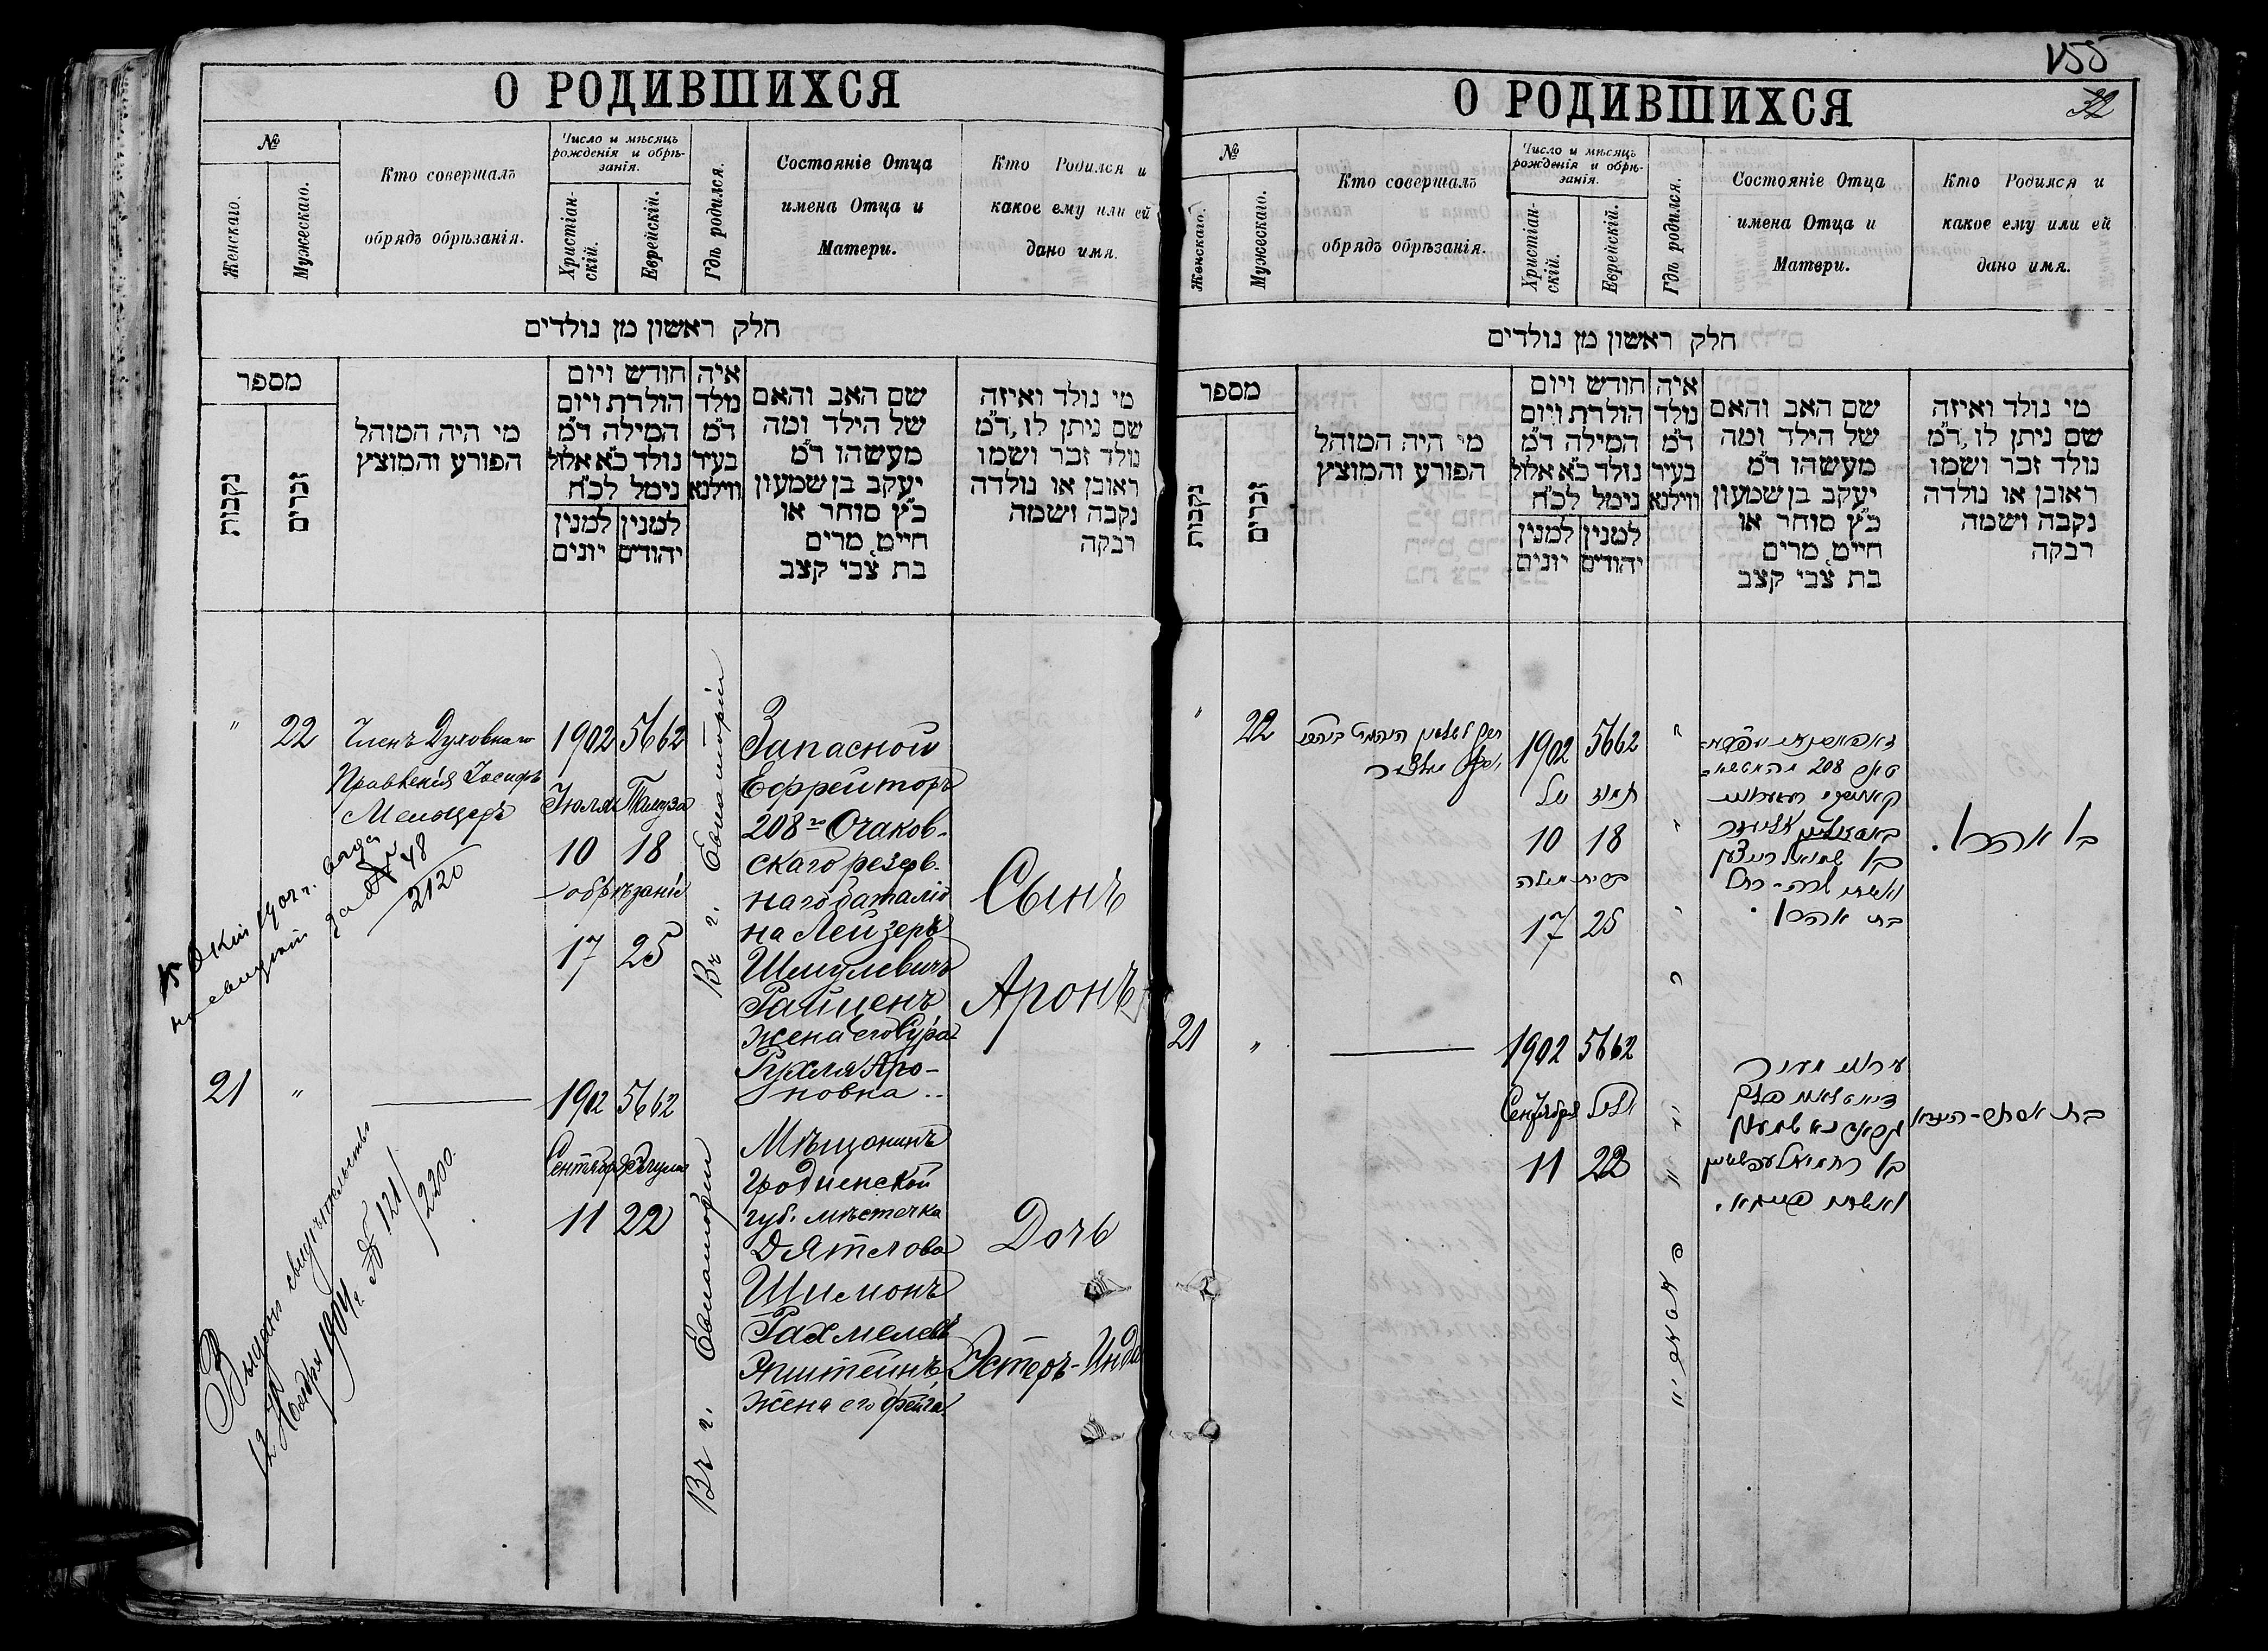 О РОДИВШИХСЯ
№
Женскаго.
Мужескаго.
Кто совершалъ
обрядъ обрѣзанія.
Число и мѣсяцъ
рожденія и обрѣ-
занія.
Христіан-
скій.
Еврейскій.
Гдѣ родился.
Состояніе Отца
имена Отца и
Матери.
Кто Родился и
какое ему или ей
дано имя.
חלק ראשון מן נולדים
מספר
נקבות
זכרים
מי היה המוהל
הפורע והמוצץ
חודש ויום
הולדת ויום
המילה ד״מ
נולד כ״א אלול
נימל לכ״ח
למנין
יהודים
למנין
יונים
איה
נולד
ד״מ
בעיר
ווילנא
שם האב והאם
של הילד ומה
מעשהו ד״מ
יעקב בן שמעון
כ״ץ סוחר או
חייט, מרים
בת צבי קצב
מי נולד ואיזה
שם ניתן לו, ד״מ
נולד זכר ושמו
ראובן או נולדה
נקבה ושמה
רבקה
" 22
Членъ Духовнаго
Правленія Іосифъ
Мельцеръ
1902 5662
Іюля Тамуза
10 18
обрѣзаніе
17 25
Въ г. Евпаторіи
Запасной
Ефрейторъ
208го Очаков-
скаго резерв-
наго баталіо
на Лейзеръ
Шмулевичъ
Райценъ
жена его Сура-
Рухля Аро-
новна..
Сынъ
Аронъ
1902 г.
за № 48
2120
21 "
1902 5662
Сентября Элула
11 22
Въ г. Евпаторіи
Мѣщанинъ
Гродненской
губ. мѣстечка
Дятлова
Шимонъ
Рахмелев
Эпштейнъ
жена его Фейга.
Дочь
Эстеръ-Инда
Выдано свидѣтельство
12 Ноября 1904 г. № 121/
/2200.
155
32
О РОДИВШИХСЯ
№
Женскаго.
Мужескаго.
Кто совершалъ
обрядъ обрѣзанія.
Число и мѣсяцъ
рожденія и обрѣ-
занія.
Христіан-
скій.
Еврейскій.
Гдѣ родился.
Состояніе Отца
имена Отца и
Матери.
Кто Родился и
какое ему или ей
дано имя.
חלק ראשון מן נולדים
מספר
נקבות
זכרים
מי היה המוהל
הפורע והמוצץ
חודש ויום
הולדת ויום
המילה ד״מ
נולד כ״א אלול
נימל לכ״ח
למנין
יהודים
למנין
יונים
איה
נולד
ד״מ
בעיר
ווילנא
שם האב והאם
של הילד ומה
מעשהו ד״מ
יעקב בן שמעון
כ״ץ סוחר או
חייט, מרים
בת צבי קצב
מי נולד ואיזה
שם ניתן לו, ד״מ
נולד זכר ושמו
ראובן או נולדה
נקבה ושמה
רבקה
" 22
1902 5662
יול תמוז
10 18
ברית מילה
17 25
208
בן שמואל
ואשתו שרה-רחל
בת אהרן.
בן אהרן.
21 "
1902 5662
Сентября אלול
11 22
ואשתו פייגא.
בת אסתר-הינדא